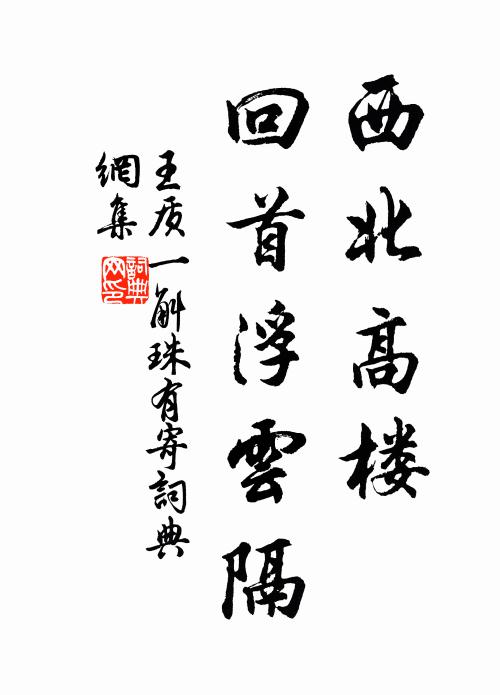 西北高楼
回首浮雲隔
王质一斛珠有寄詞典
網集
詞典網印